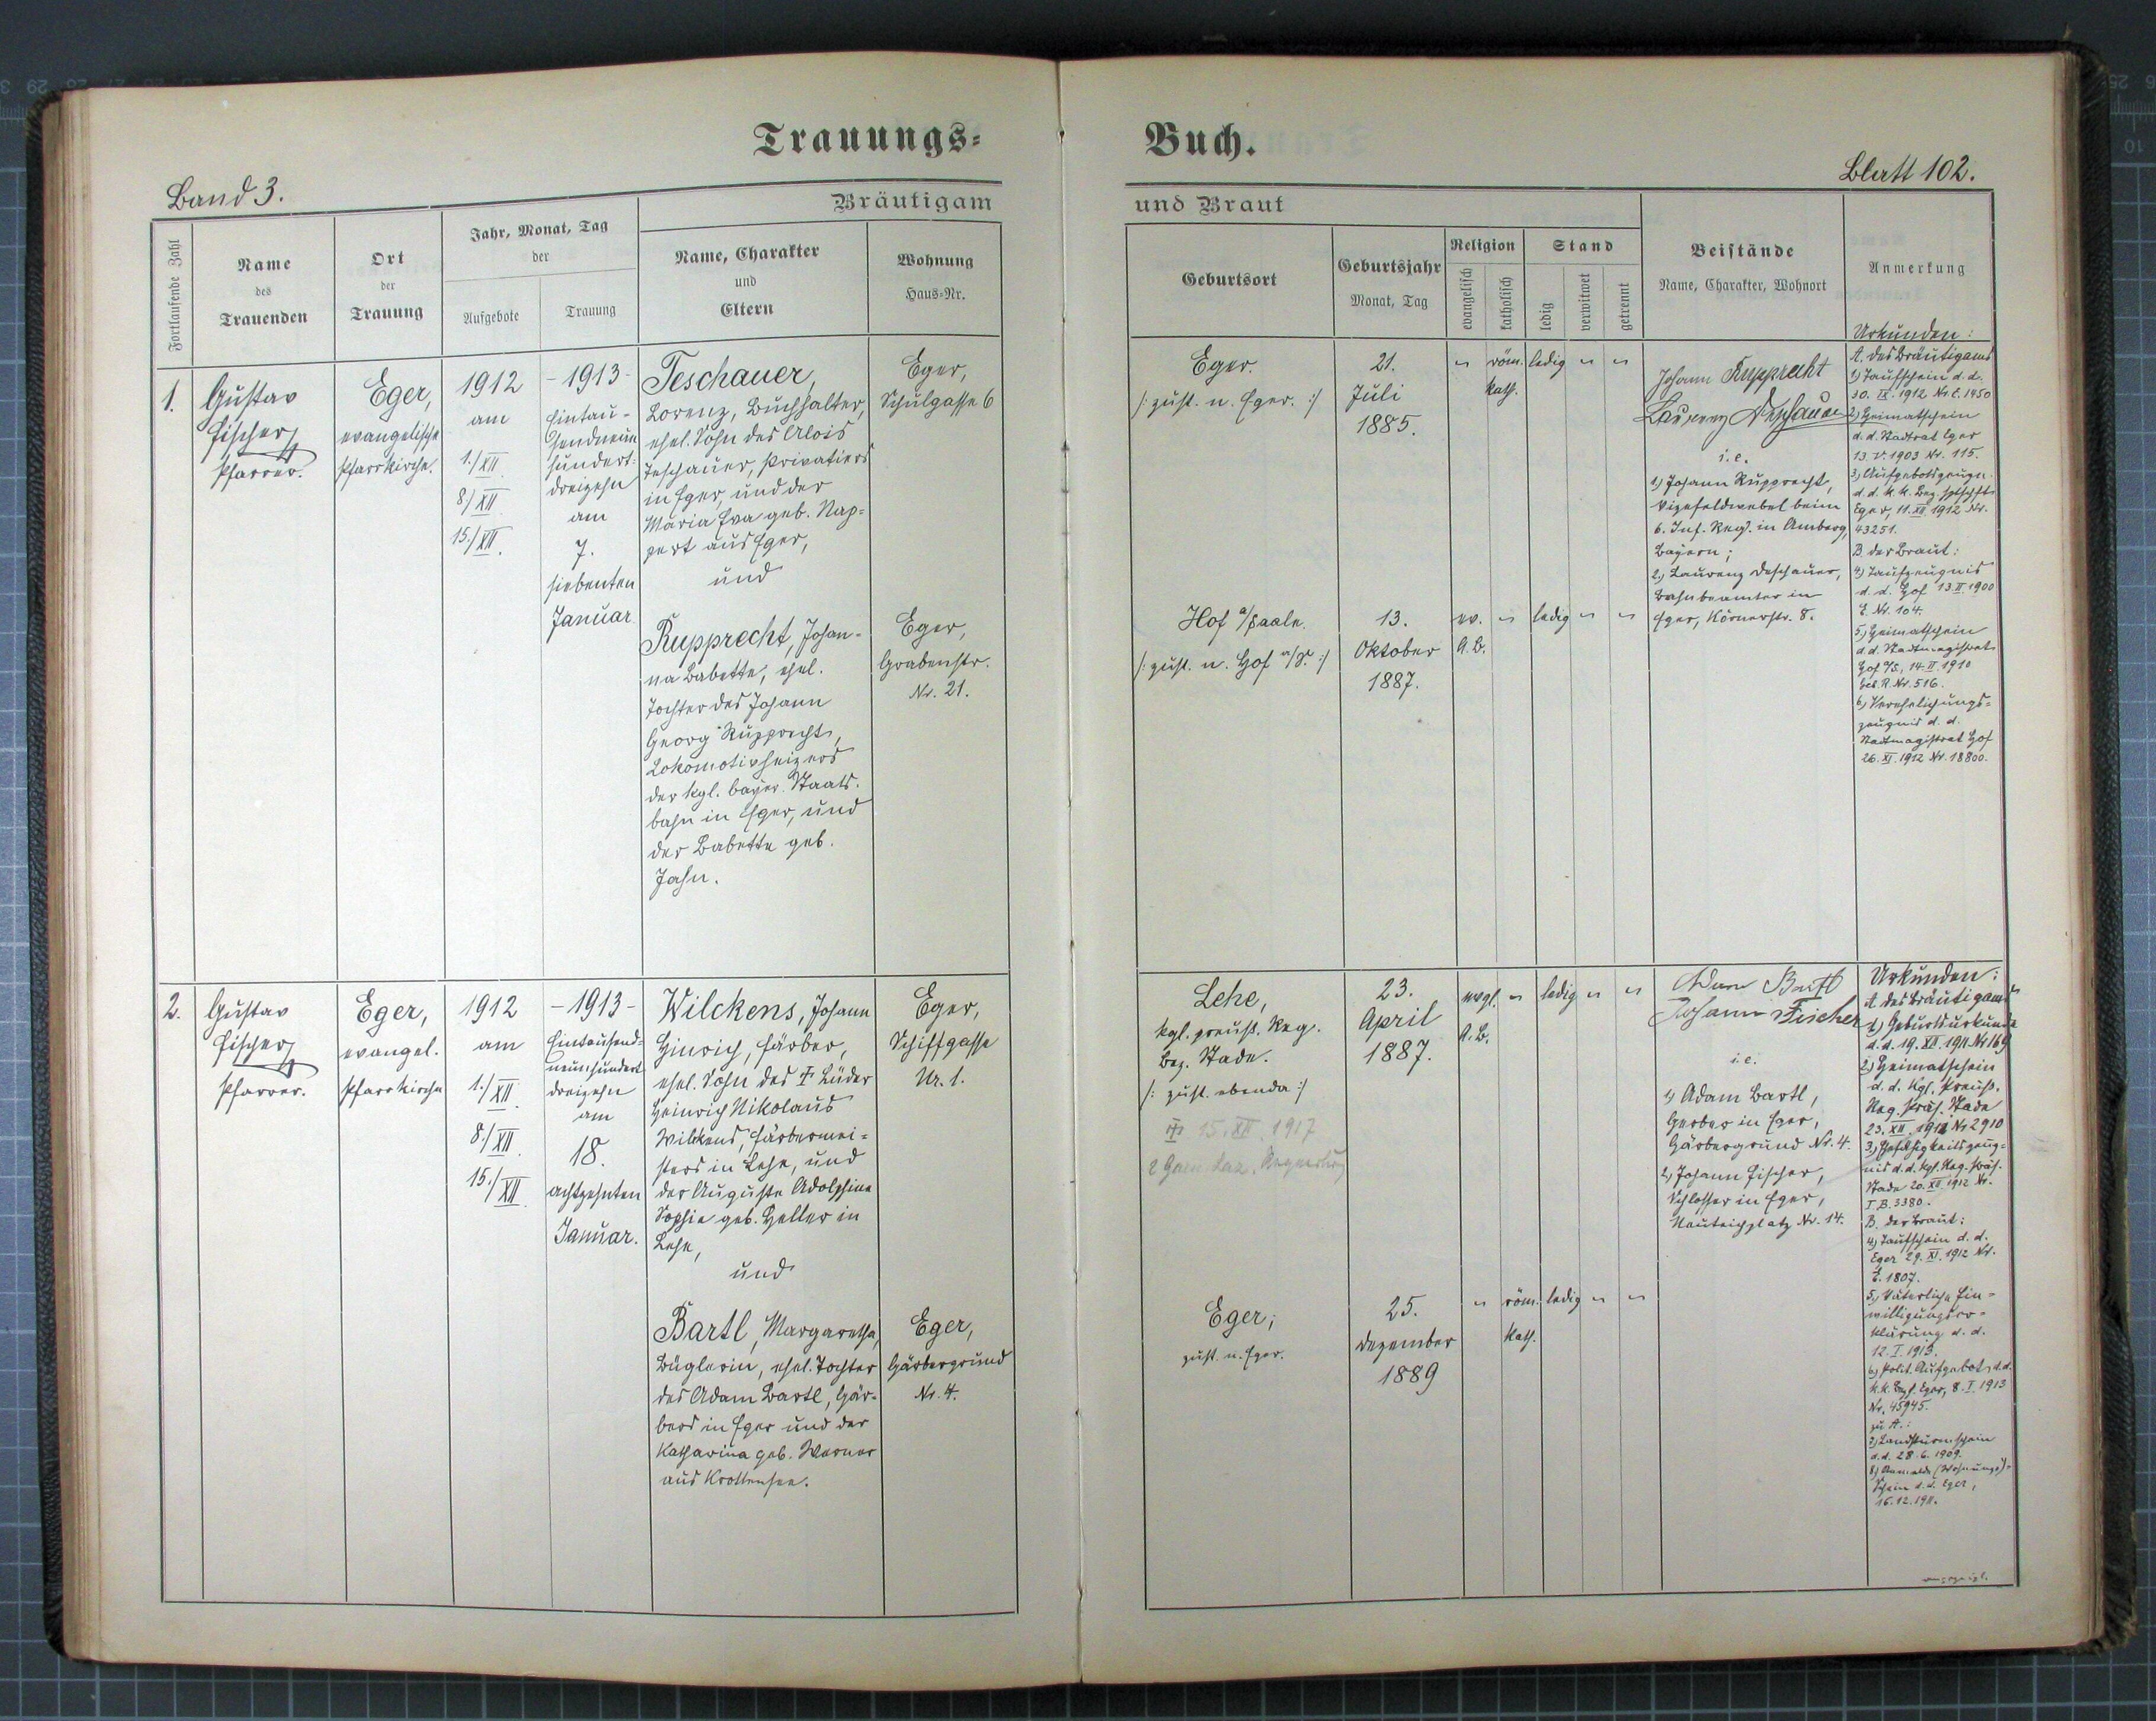 Trauungs-
Buch.
Band 3.
Blatt 102.
Bräutigam
und Braut
Fortlaufende Zahl
Name
des
Trauenden
Ort
der
Trauung
Jahr, Monat, Tag
der
Aufgebote
Trauung
Name, Charakter
und
Eltern
Wohnung
Haus-Nr.
Geburtsort
Geburtsjahr
Monat, Tag
Religion
evangelisch
katholisch
Stand
ledig
verwitwet
getrennt
Beistände
Name, Charakter, Wohnort
Anmerkung
1.
Gustav
Fischer
Pfarrer.
Eger,
evangelische
Pfarrkirche.
1912
am
1./XII.
8./XII.
15./XII.
-1913-
Eintau-
sendneun
hundert-
dreizehn
am
7.
siebenten
Januar
Teschauer,
Lorenz, Buchhalter,
ehel. Sohn des Alois
Teschauer, Privatiers
in Eger, und der
Maria Eva geb. Nap-
pert aus Eger,
und
Rupprecht, Johan-
na Babette, ehel.
Tochter des Johann
Georg Rupprecht,
Lokomotivheizers
der kgl. bayer. Staats-
bahn in Eger, und
der Babette geb.
Jahn.
Eger,
Schulgasse 6
Eger,
Grabenstr.
Nr. 21.
Eger.
/: zust. n. Eger. :/
Hof a/Saale.
/: zust. n. Hof a/S. :/
21.
Juli
1885.
13.
Oktober
1887.
" röm. ledig " "
kath.
ev. " ledig " "
A. B.
Johann Rupprecht
Laurenz Deschauer
i. e.
1.) Johann Rupprecht,
Vizefeldwebel beim
6. Inf. Reg. in Amberg,
Bayern;
2.) Laurenz Deschauer,
Bahnbeamter in
Eger, Körnerstr. 8.
Urkunden:
A. des Bräutigams
1.) Taufschein d. d.
30. IX. 1912 Nr. E. 1450
2.) Heimatschein
d. d. Stadtrat Eger
13. V. 1903 Nr. 115.
3.) Aufgebotszeugn.
d. d. k. k. Bez. Hptschft.
Eger, 11. XII 1912 Nr.
43251.
B. der Braut:
4.) Taufzeugnis
d. d. Hof 13. II 1900
E. Nr. 104.
5.) Heimatschein
d. d. Stadtmagistrat
Hof a/S., 14. II. 1910
Geb. R. Nr. 516.
6.) Verehelichungs-
zeugnis d. d.
Stadtmagistrat Hof
26. XI. 1912 Nr. 18800.
2.
Gustav
Fischer
Pfarrer.
Eger,
evangel.
Pfarrkirche
1912
am
1./XII.
8./XII.
15./XII.
-1913-
Eintausend-
neunhundert
dreizehn
am
18.
achtzehnten
Januar.
Wilckens, Johann
Hinrich, Färber,
ehel. Sohn des † Lüder
Heinrich Nikolaus
Wilckens, Färbermei-
sters in Lehe, und
der Auguste Adolphine
Sophie geb. Heller in
Lehe,
und
Bartl, Margaretha,
Büglerin, ehel. Tochter
des Adam Bartl, Gär-
bers in Eger und der
Katharina geb. Werner
aus Krottensee.
Eger,
Schiffgasse
Nr. 1.
Eger,
Gärbergrund
Nr. 4.
Lehe,
kgl. preuß. Reg.
Bez. Stade.
/: zust. ebenda :/
† 15. XII. 1917
Eger;
zust. n. Eger.
23.
April
1887.
25.
Dezember
1889
evgl. " ledig " "
A. B.
" röm. ledig " "
kath.
Adam Bartl
Johann Fischer
i. e.
1.) Adam Bartl,
Gerber in Eger,
Gärbergrund Nr. 4.
2.) Johann Fischer,
Schlosser in Eger,
Nr. 14.
Urkunden:
A. des Bräutigams
1.) Geburtsurkunde
d. d. 19. XII. 1911 Nr 169
2.) Heimatschein
d. d. kgl. Preuß.
Reg. Präs. Stade
23. XII. 1912 Nr 2910
3.) Ehefähigkeitszeug-
nis d. d. kgl. Reg. Präs.
Stade 20. XII. 1912 Nr.
I. B. 3380.
B. der Braut:
4.) Taufschein d. d.
Eger 29. XI. 1912 Nr.
E. 1807.
5.) Väterliche Ein-
willigungser-
klärung d. d.
12. I. 1913.
6.) Polit. Aufgebot, d. d.
k. k. Bezh. Eger, 8. I. 1913
Nr. 45945.
zu A.:
7.) Landsturmschein
d. d. 28. 6. 1909.
8.) Anmelde (Wohnungs)-
Schein d. d. Eger,
16. 12. 1911.